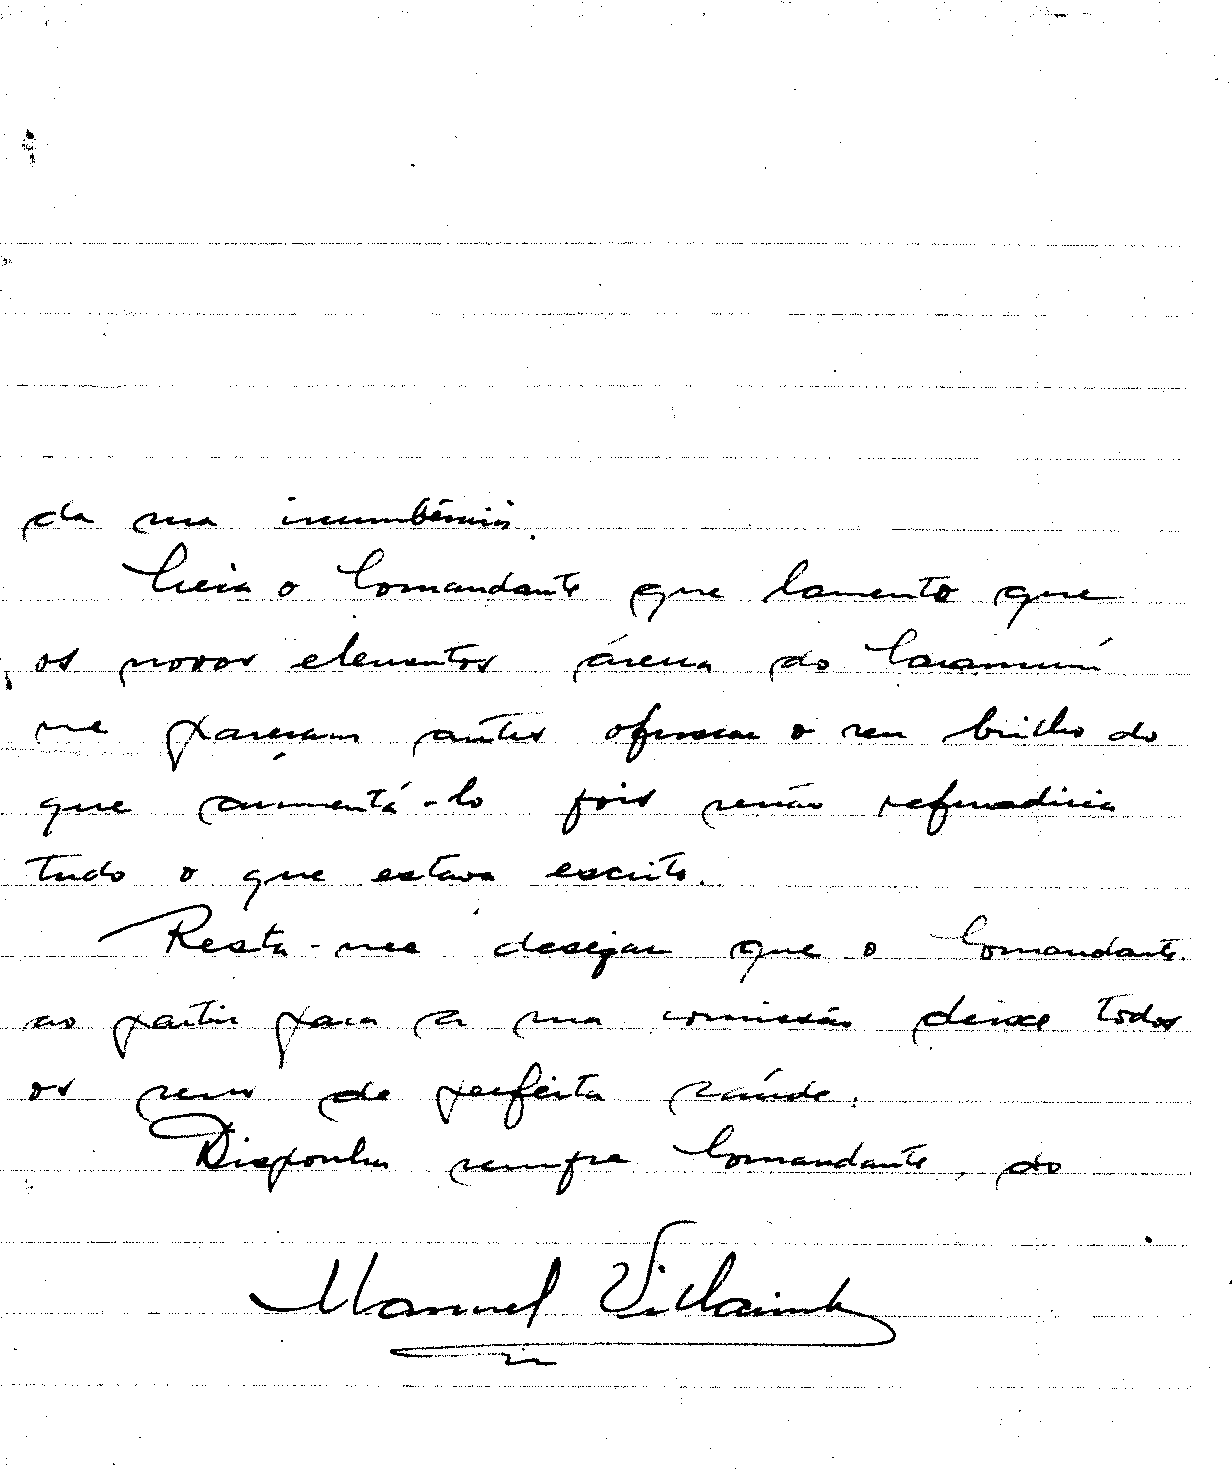 da sua incumbência.
Creia o Comandante que lamento que
os novos elementos àcerca do Caramurú
me pareçam antes ofuscar o seu brilho do
que aumentá-lo pois senão refundiria
tudo o que estava escrito.
Resta-me desejar que o Comandante
ao partir para a sua comissão deixe todos
os seus de perfeita saúde.
Disponha sempre Comandante, do
Manuel